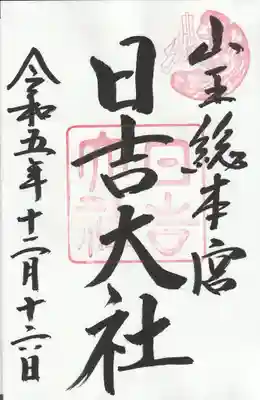 山王総本宮
日吉大社
令和五年十二月十六日
日吉大社